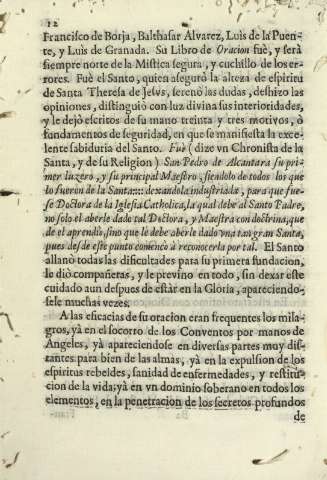 12
Francisco de Borja, Balthasar Alvarez, Luis de la Puen-
te, y Luis de Granada. Su Libro de Oracion fuè, y serà
siempre norte de la Mistica segura, y cuchillo de los er-
rores. Fuè el Santo, quien asegurò la alteza de espiritu
de Santa Theresa de Jesvs, serenò las dudas, deshizo las
opiniones, distinguiò con luz divina sus interioridades,
y le dejò escritos de su mano treinta y tres motivos, ò
fundamentos de seguridad, en que se manifiesta la exce-
lente sabiduria del Santo. Fuè (dize vn Chronista de la
Santa, y de su Religion) San Pedro de Alcantara su pri-
mer luzero, y su principal Maestro, siendolo de todos los que
lo fueron de la Santa:::: dexandola industriada, para que fue-
se Doctora de la Iglesia Catholica, la qual debe al Santo Padre,
no solo el aberle dado tal Doctora, y Maestra con doctrina, que
de el aprendiò, sino que le debe aberle dado vna tan gran Santa,
pues desde este punto comencò à reconocerla por tal. El Santo
allanò todas las dificultades para su primera fundacion,
le diò compañeras, y le previno en todo, sin dexar este
cuidado aun despues de estàr en la Gloria, apareciendo-
sele muchas vezes.
A las eficacias de su oracion eran frequentes los mila-
gros, yà en el socorro de los Conventos por manos de
Angeles, yà apareciendose en diversas partes muy dis-
tantes para bien de las almas, yà en la expulsion de los
espiritus rebeldes, sanidad de enfermedades, y restitu-
cion de la vida; yà en vn dominio soberano en todos los
elementos, en la penetracion de los secretos profundos
de